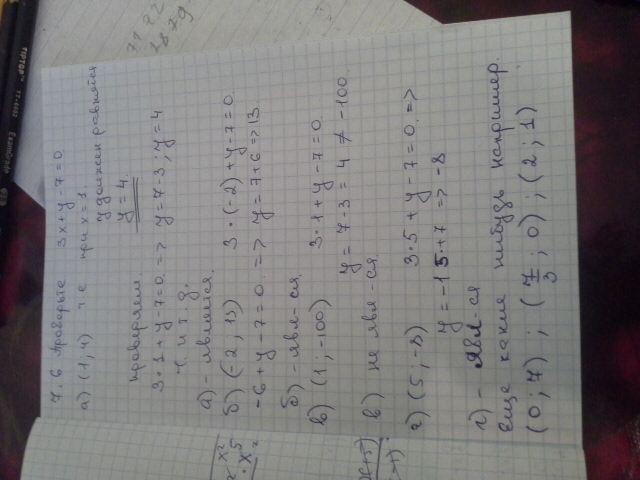 7.6 Проверьте 3x + y - 7 = 0
а) (1; 4) т.е при x = 1
y должен равнятся
y = 4.
проверяем
3·1 + y - 7 = 0 => y = 7 - 3; y = 4
ч. и т. д.
а) - является.
б) (-2; 13) 3·(-2) + y - 7 = 0.
-6 + y - 7 = 0. => y = 7 + 6 => 13
б) - явл - ся.
в) (1; -100) 3·1 + y - 7 = 0.
y = 7 - 3 = 4 ≠ -100.
в) не явл - ся.
г) (5; -8) 3·5 + y - 7 = 0. =>
y = -15 + 7 => -8
г) - явл - ся
Еще какие нибудь например.
(0; 7); (7/3; 0); (2; 1)